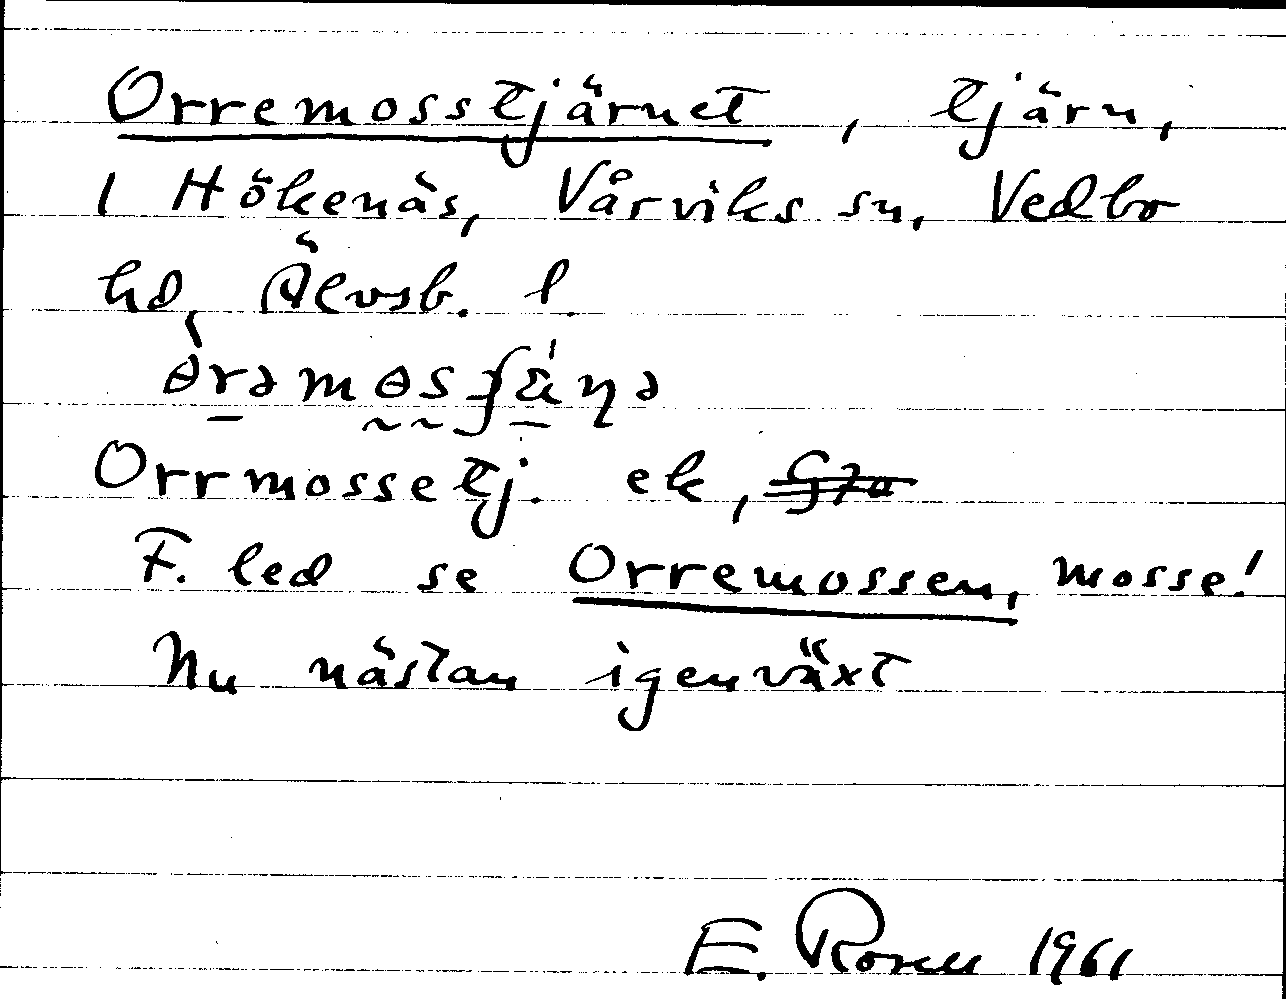 Orremosstjärnet, tjärn,
i Hökenäs, Vårviks sn, Vedbo
hd, Älvsb. l.
ɵ̀rəmɵsʃä́ɳə
Orrmossetj. ek,
F. led se Orremossen, mosse!
Nu nästan igenväxt
E. Rosell 1961